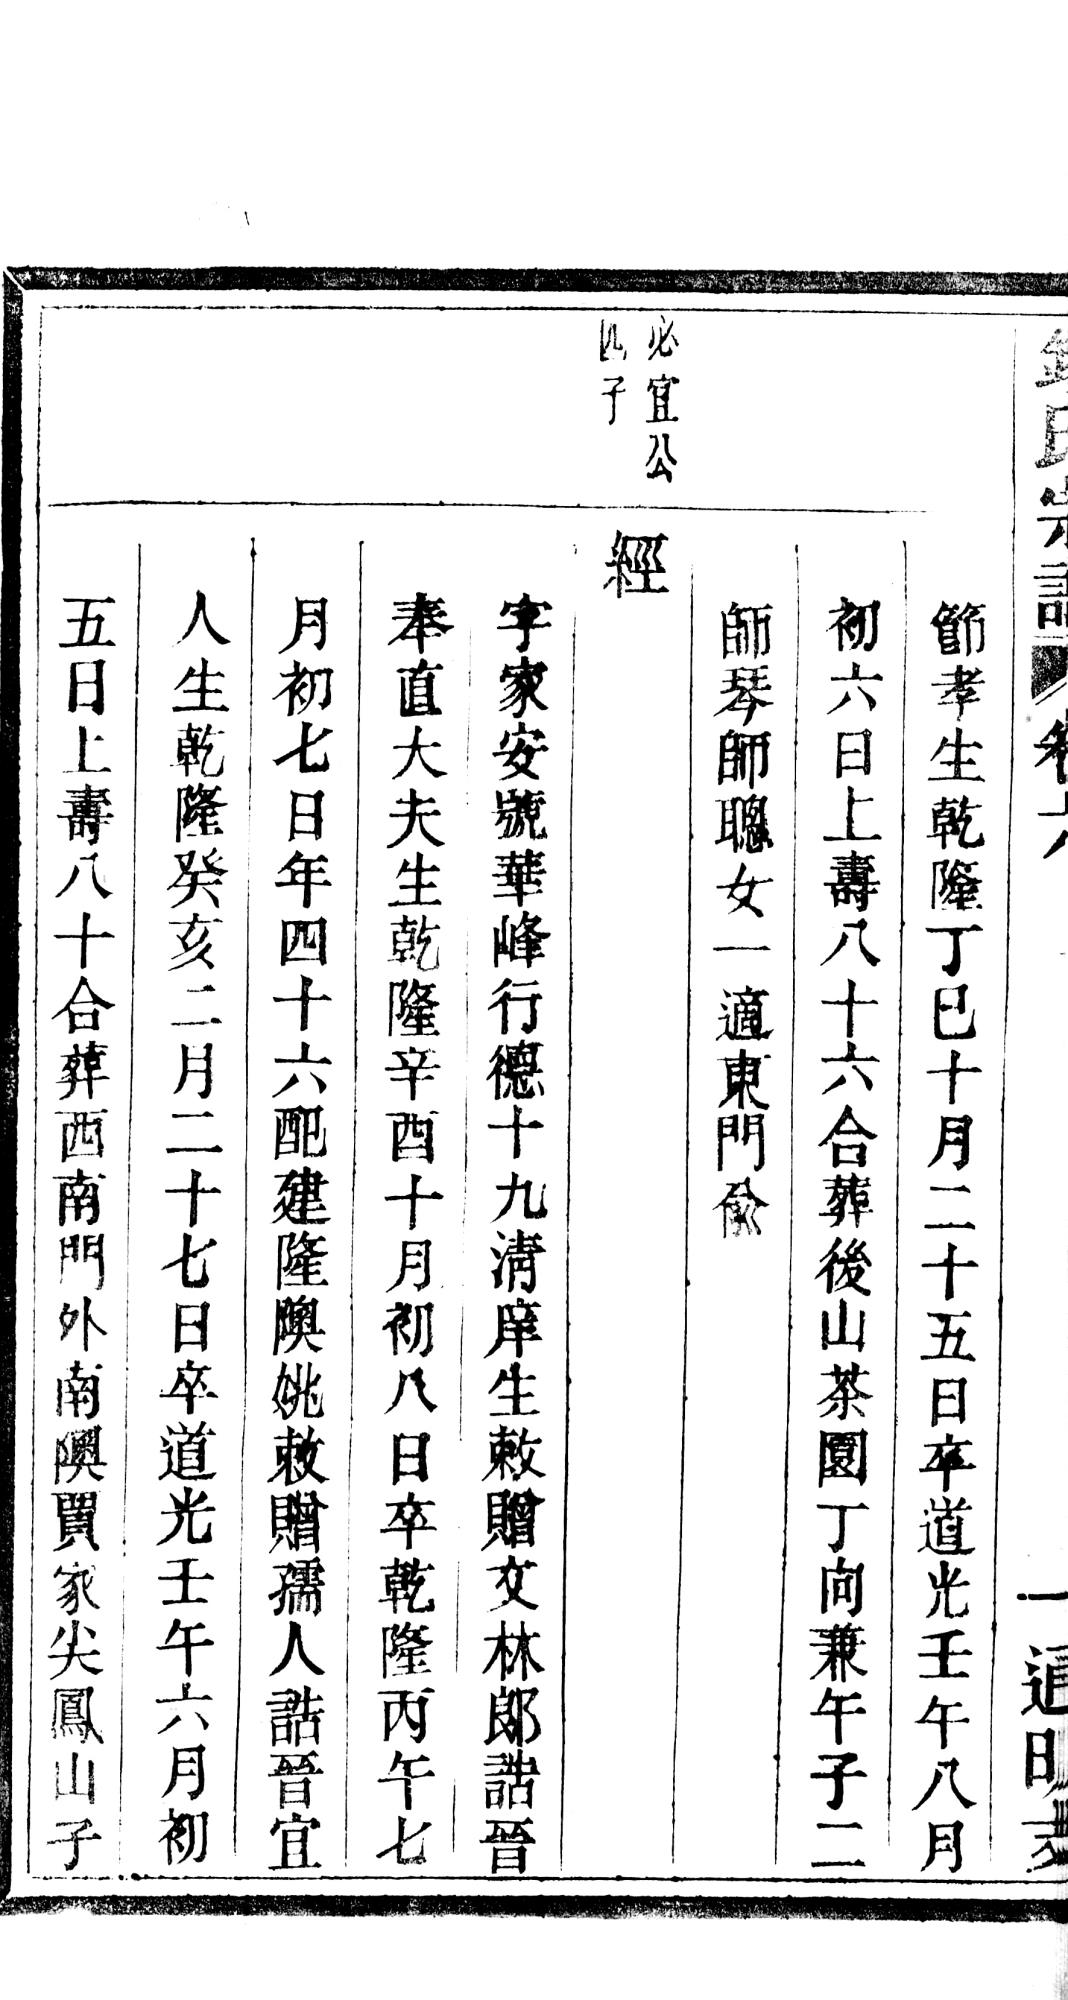 氏宗譜 卷六 一 通明支
節孝生乾隆丁巳十月二十五日卒道光壬午八月
初六日上壽八十六合葬後山茶園丁向兼午子二
師琴師聰女一適東門俞
必宜公
四子
經
字家安號華峰行德十九清庠生敕贈文林郎誥晉
奉直大夫生乾隆辛酉十月初八日卒乾隆丙午七
月初七日年四十六配建隆隩姚敕贈孺人誥晉宜
人生乾隆癸亥二月二十七日卒道光壬午六月初
五日上壽八十合葬西南門外南隩賈家尖鳳山子